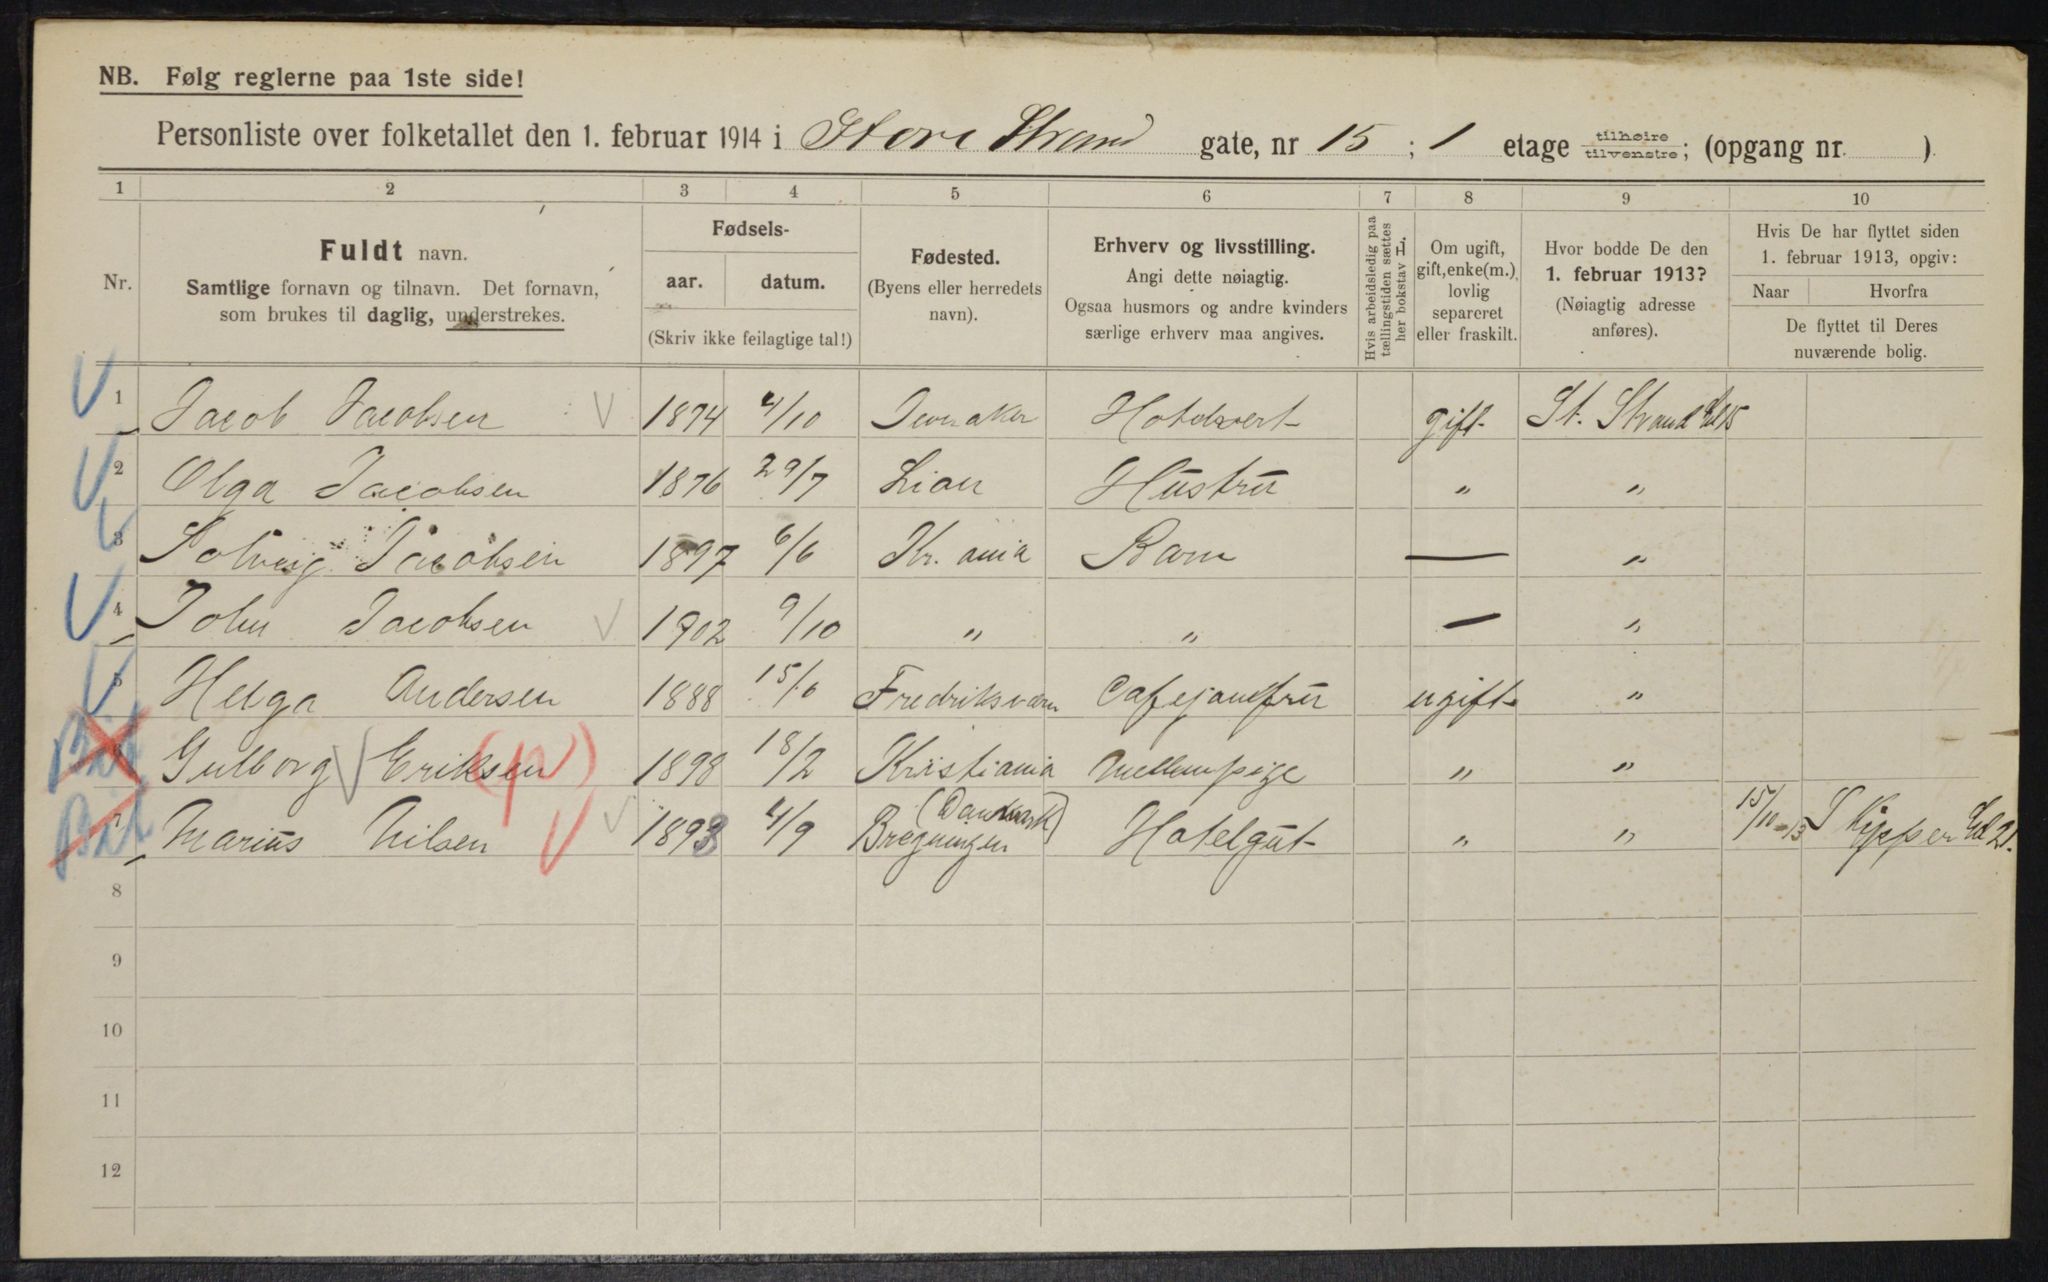 NB. Følg reglerne paa 1ste side!
Personliste over folketallet den 1. februar 1914 i Store Strand gate, nr 15 ; 1 etage tilhøire tilvenstre; (opgang nr. )
1 2 3 4 5 6 7 8 9 10
Nr.
Fuldt navn.
Samtlige fornavn og tilnavn. Det fornavn,
som brukes til daglig, understrekes.
Fødsels-
aar. datum.
(Skriv ikke feilagtige tal!)
Fødested.
(Byens eller herredets
navn).
Erhverv og livsstilling.
Angi dette nøiagtig.
Ogsaa husmors og andre kvinders
særlige erhverv maa angives.
Hvis arbeidsledig paa
tællingstiden sættes
her bokstav L.
Om ugift,
gift, enke(m.),
lovlig
separeret
eller fraskilt.
Hvor bodde De den
1. februar 1913?
(Nøiagtig adresse
anføres).
Hvis De har flyttet siden
1. februar 1913, opgiv:
Naar Hvorfra
De flyttet til Deres
nuværende bolig.
1 Jacob Jacobsen 1874 4/10 Jevnaker Hotelvert gift St. Strand Gd 15
2 Olga Jacobsen 1876 29/7 Lier Hustru " "
3 Solveig Jacobsen 1897 6/6 Kr. ania Barn — "
4 John Jacobsen 1902 9/10 " " — "
5 Helga Andersen 1888 15/6 Fredriksværn Cafejomfru ugift "
6 Gulborg Eriksen (p) 1898 18/2 Kristiania Mellempige " "
7 Marius Nilsen 1893 4/9 Bregningen (Danmark) Hotelgut " " 15/10-13 Skipper Gd 21.
8
9
10
11
12